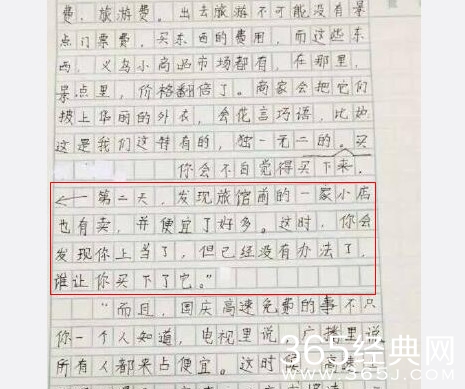 费、旅游费。出去旅游不可能没有景
点门票费，买东西的费用，而这些东
西，义乌小商品市场都有，在那里，
景点里，价格翻倍了。商家会把它们
披上华丽的外衣，会花言巧语，比如
这是我们这特有的，独一无二的。买
你会不自觉得买下来。
第二天，发现旅馆前的一家小店
也有卖，并便宜了好多。这时，你会
发现你上当了，但已经没有办法了，
谁让你买下了它。”
“而且，国庆高速免费的事不只
你一个人知道，电视里说，广播里说
所有人都来占便宜。这时候，高速
365经典网
365jingdian.com